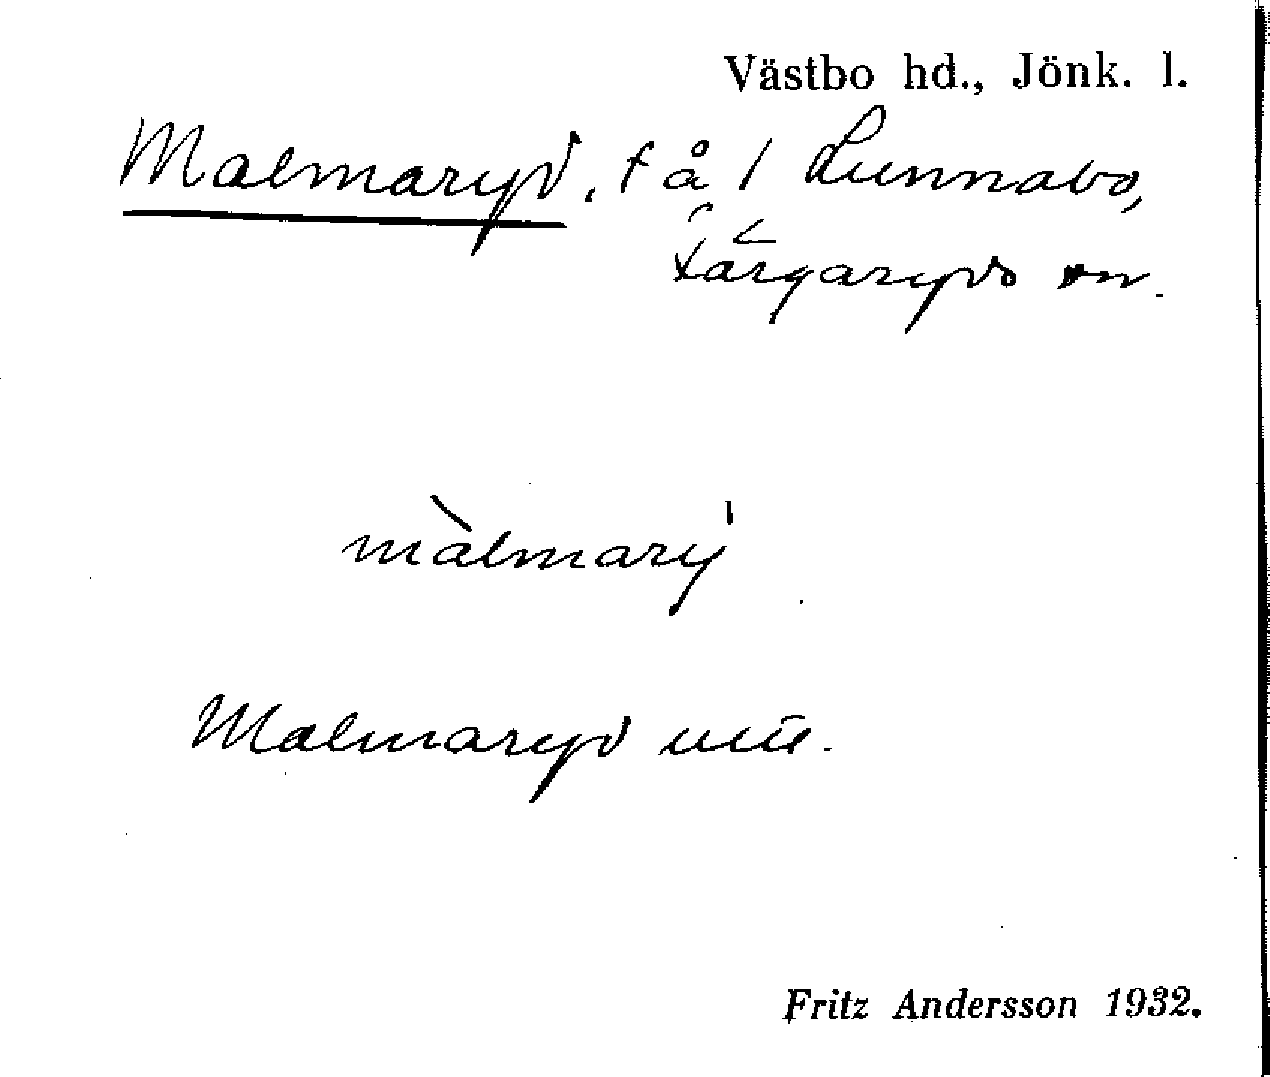 Västbo hd., Jönk. l.
Malmaryd, t å / Lunnabo,
Färgaryds sn.
màlmarý
Malmaryd
Fritz Andersson 1932.